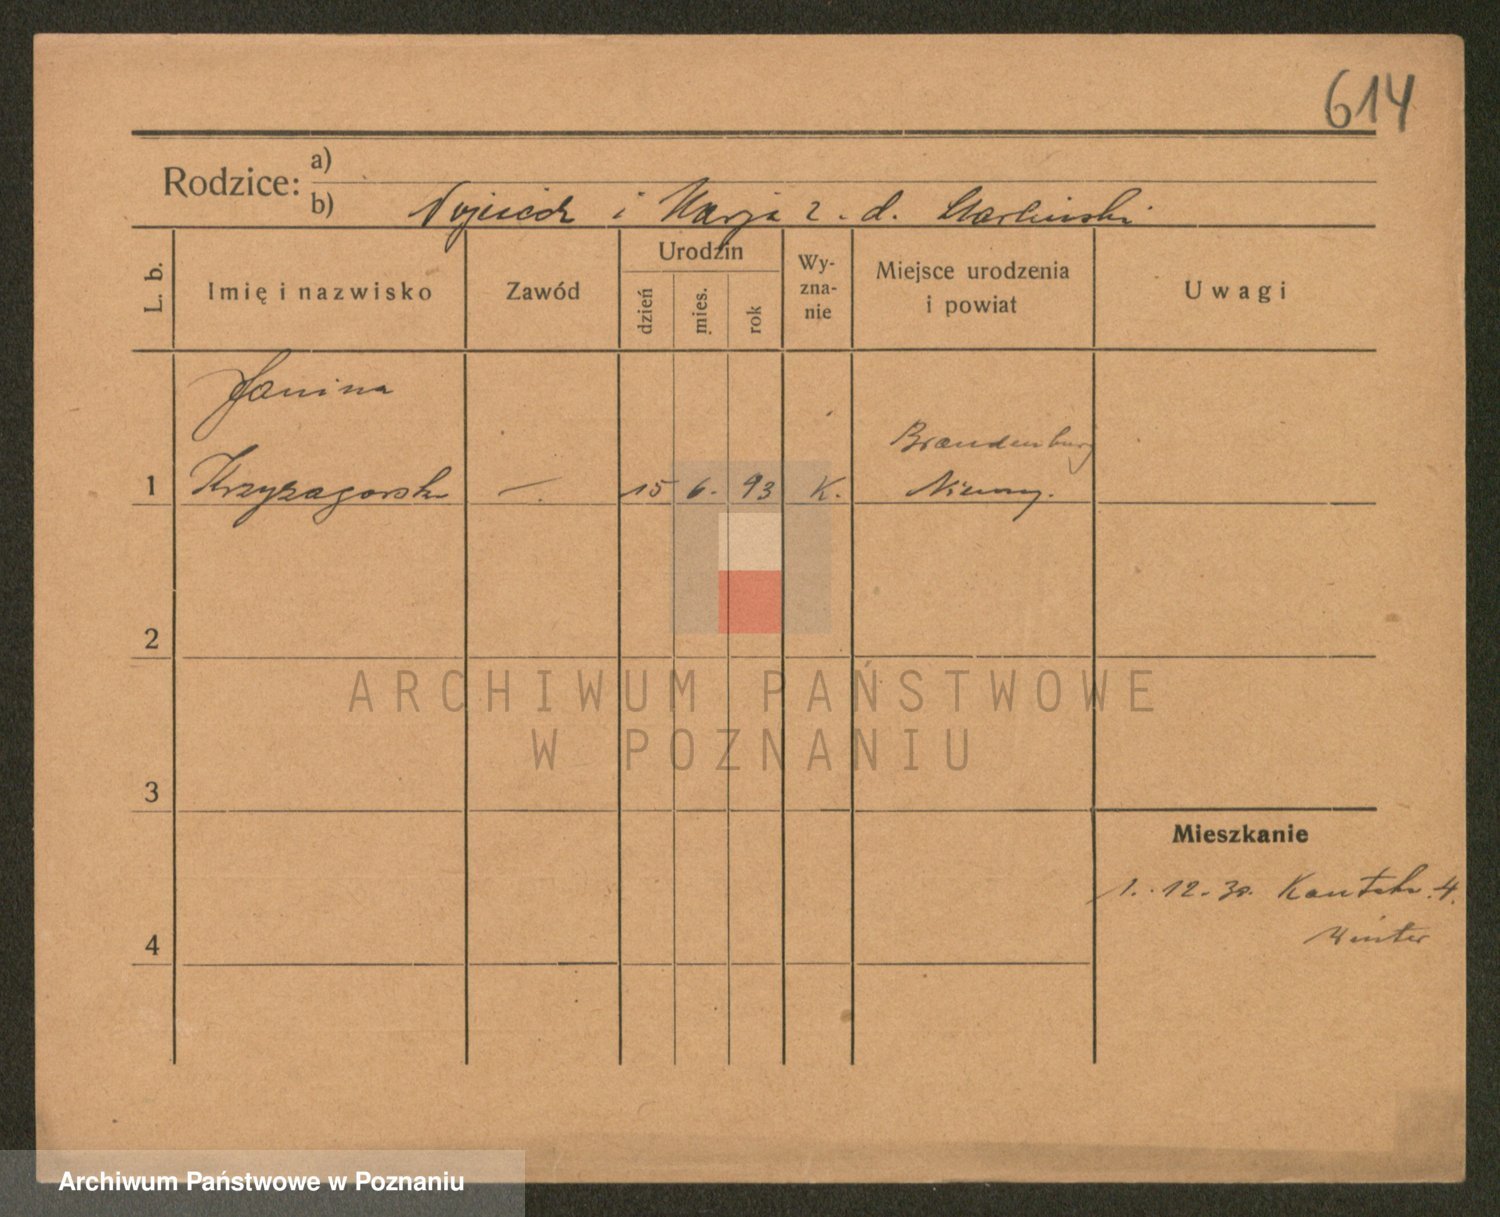 614
Rodzice: a)
b) Wojciech i Marja z. d.
L. b.
Imię i nazwisko
Zawód
Urodzin
dzień
mies.
rok
Wy-
zna-
nie
Miejsce urodzenia
i powiat
Uwagi
Janina
Brandenburg
1 Krzyżagorska —. 15 6. 93 K. Niemcy.
2
ARCHIWUM PAŃSTWOWE
W POZNANIU
3
Mieszkanie
1. 12. 30. Kantaka 4.
4
Winter
Archiwum Państwowe w Poznaniu